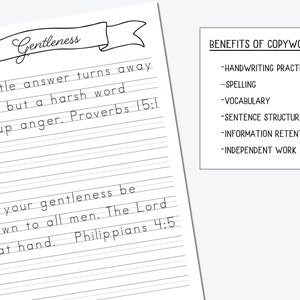 Gentleness
tle answer turns away
but a harsh word
up anger. Proverbs 15:1
your gentleness be
own to all men. The Lord
at hand. Philippians 4:5
BENEFITS OF COPYWO
-HANDWRITING PRACTI
-SPELLING
-VOCABULARY
-SENTENCE STRUCTUR
-INFORMATION RETENT
-INDEPENDENT WORK